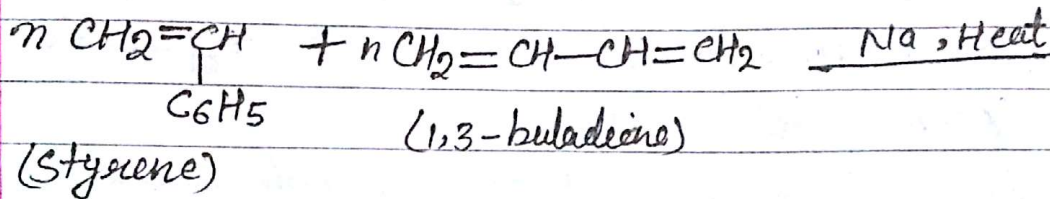 n CH2=CH + n CH2=CH—CH=CH2 Na, Heat
C6H5
(1,3-buladeine)
(Styrene)